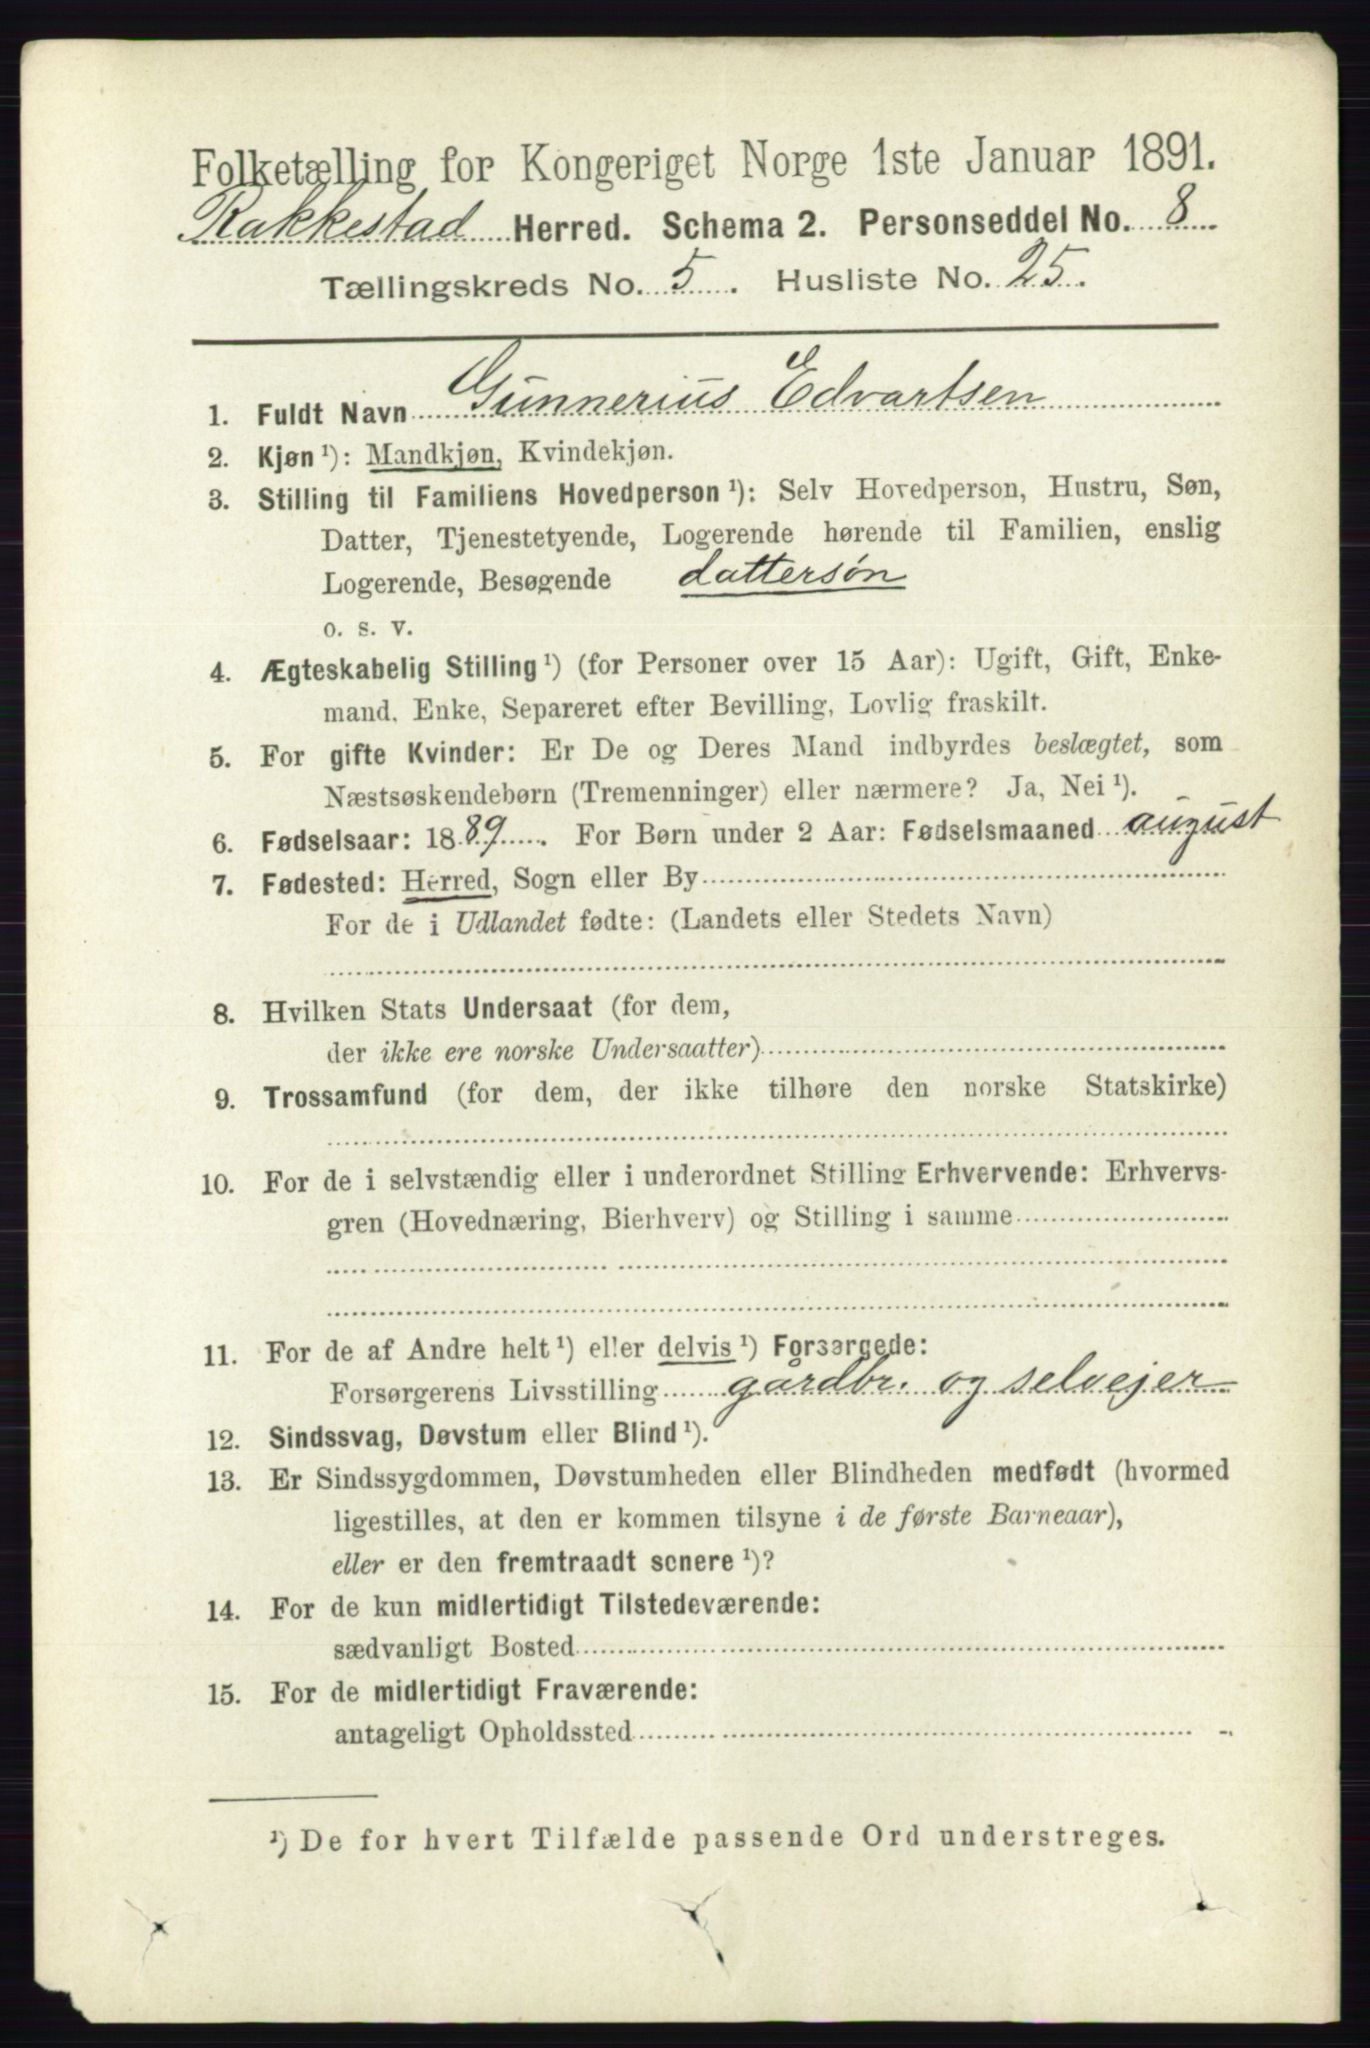 Folketælling for Kongeriget Norge 1ste Januar 1891.
Rakkestad Herred. Schema 2. Personseddel No. 8
Tællingskreds No. 5. Husliste No. 25.
1. Fuldt Navn Gunnerius Edvartsen
2. Kjøn ¹): Mandkjøn, Kvindekjøn.
3. Stilling til Familiens Hovedperson ¹): Selv Hovedperson, Hustru, Søn,
Datter, Tjenestetyende, Logerende hørende til Familien, enslig
Logerende, Besøgende dattersøn
o. s. v.
4. Ægteskabelig Stilling ¹) (for Personer over 15 Aar): Ugift, Gift, Enke-
mand, Enke, Separeret efter Bevilling, Lovlig fraskilt.
5. For gifte Kvinder: Er De og Deres Mand indbyrdes beslægtet, som
Næstsøskendebørn (Tremenninger) eller nærmere? Ja, Nei ¹).
6. Fødselsaar: 1889. For Børn under 2 Aar: Fødselsmaaned august
7. Fødested: Herred, Sogn eller By
For de i Udlandet fødte: (Landets eller Stedets Navn)
8. Hvilken Stats Undersaat (for dem,
der ikke ere norske Undersaatter)
9. Trossamfund (for dem, der ikke tilhøre den norske Statskirke)
10. For de i selvstændig eller i underordnet Stilling Erhvervende: Erhvervs-
gren (Hovednæring, Bierhverv) og Stilling i samme
11. For de af Andre helt ¹) eller delvis ¹) Forsørgede:
Forsørgerens Livsstilling gårdbr. og selvejer
12. Sindssvag, Døvstum eller Blind ¹).
13. Er Sindssygdommen, Døvstumheden eller Blindheden medfødt (hvormed
ligestilles, at den er kommen tilsyne i de første Barneaar),
eller er den fremtraadt senere ¹)?
14. For de kun midlertidigt Tilstedeværende:
sædvanligt Bosted
15. For de midlertidigt Fraværende:
antageligt Opholdssted
¹) De for hvert Tilfælde passende Ord understreges.